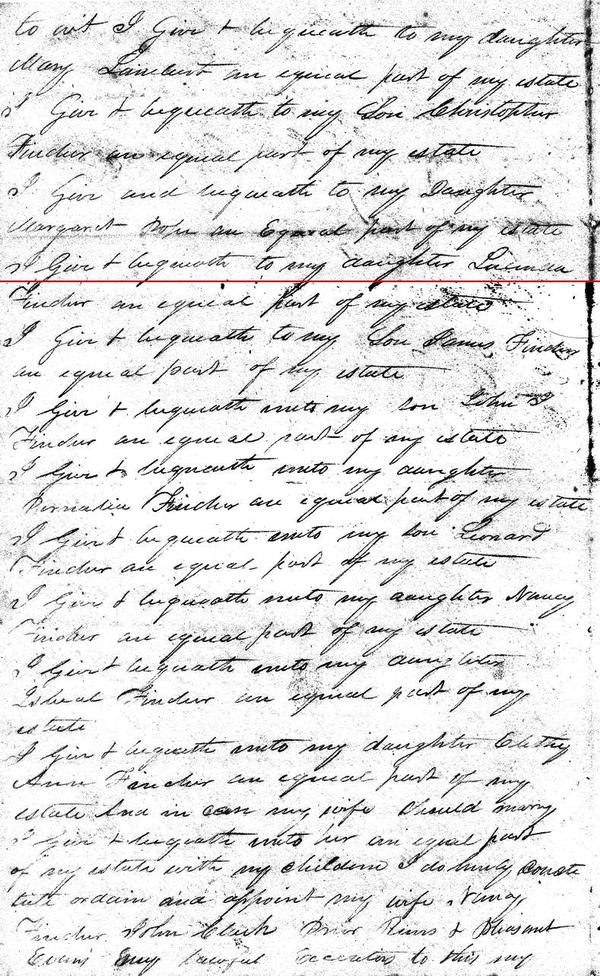 to wit I Give & bequeath to my daughter
Mary Lambert an equeal part of my estate
I Give & bequeath to my Son Christopher
Fincher an equeal part of my estate
I Give and bequeath to my Daughter
Margaret Pope an Equeal part of my estate
I Give & bequeath to my daughter Lucinda
Fincher an equeal part of my estate
I Give & bequeath to my Son James Fincher
an equeal part of my estate
I Give & bequeath unto my son John
Fincher an equeal part of my estate
I Give & bequeath unto my daughter
Fincher an equeal part of my estate
I Give & bequeath unto my son Leonard
Fincher an equeal part of my estate
I Give & bequeath unto my daughter Nancy
Fincher an equeal part of my estate
I Give & bequeath unto my daughter
Fincher an equeal part of my
estate
I Give & bequeath unto my daughter
Ann Fincher an equeal part of my
estate And in case my wife Should marry
I Give & bequeath unto her an equeal part
of my estate with my children I do hereby
tute ordain and appoint my wife Nancy
Fincher John & Pleasant
Evans my lawful to this my